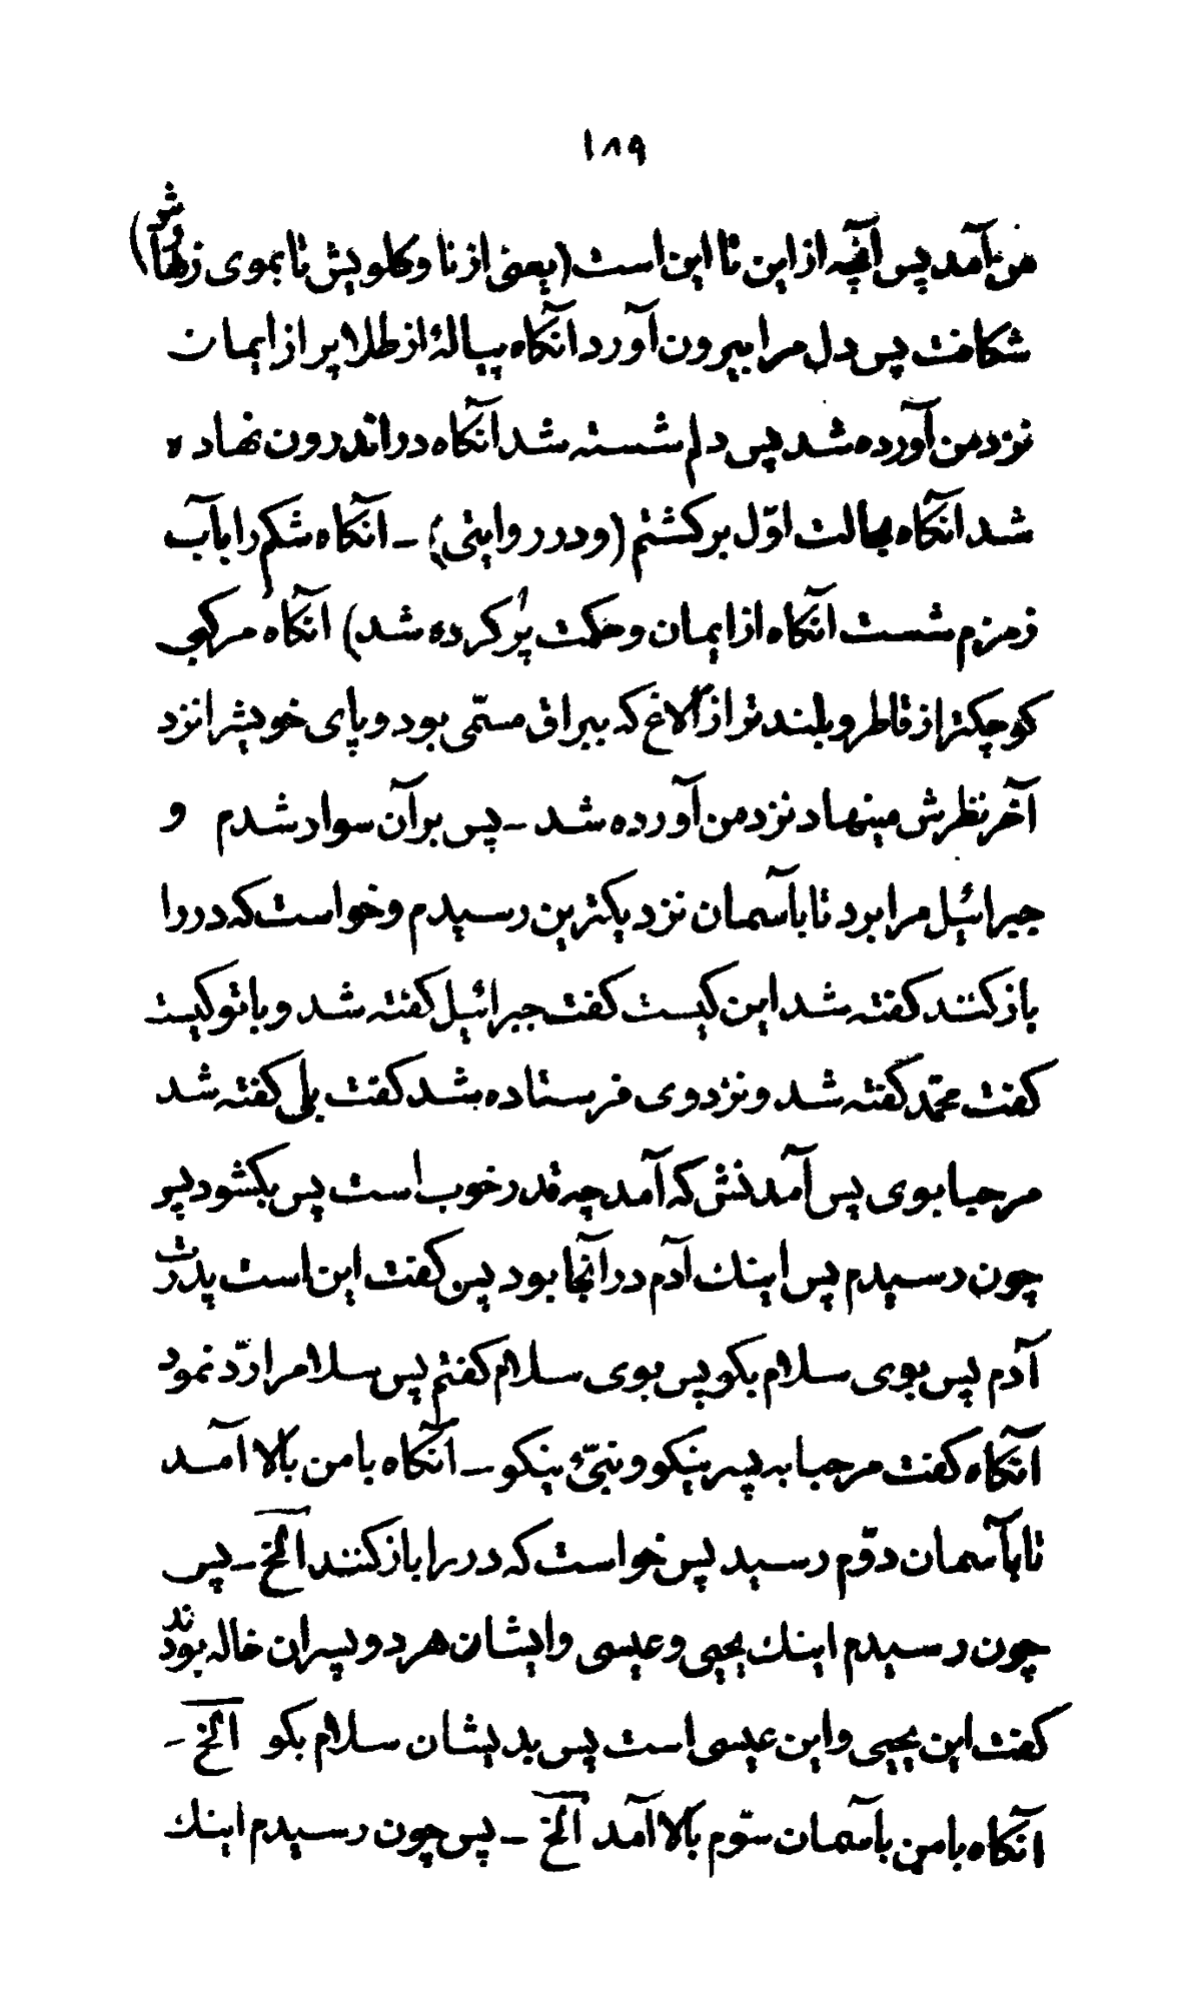 ۱۸۹
من آمد پس آنچه از این تا این است (یعنی از ناو کلویش تا بموی زهارش)
شکافت پس دل مرا بیرون آورد آنکاه پیالهٔ از طلا پر از ایمان
نزد من آورده شد پس دلم شسته شد آنکاه در اندرون نهاده
شد آنکاه بحالت اوّل برکشتم (و در روایتی) ـ آنکاه شکم را بآب
زمزم شست آنکاه از ایمان و حکمت پُر کرده شد) آنکاه مرکبی
کوچکتر از قاطر و بلند تر از الاغ که ببراق مسمّی بود و پای خویشرا نزد
آخر نظرش مینهاد نزد من آورده شد ـ پس بر آن سوار شدم و
جبرائیل مرا برد تا بآسمان نزدیکترین رسیدم و خواست که در را
باز کنند کفته شد این کیست کفت جبرائیل کفته شد و با تو کیست
کفت محمّد کفته شد و نزد وی فرستاده شد کفت بلی کفته شد
مرحبا بوی پس آمدنش که آمد چه قدر خوب است پس بکشود پس
چون رسیدم پس اینك آدم در آنجا بود پس کفت این است پدرت
آدم پس بوی سلام بکو پس بوی سلام کفتم پس سلام مرا ردّ نمود
آنکاه کفت مرحبا به پسر نیکو و نبیّ نیکو ـ آنکاه با من بالا آمد
تا بآسمان دوّم رسید پس خواست که در را باز کنند الخ ـ پس
چون رسیدم اینك یحیی و عیسی و ایشان هر دو پسران خاله بودند
کفت این یحیی و این عیسی است پس بدیشان سلام بکو الخ ـ
آنکاه با من بآسمان سوّم بالا آمد الخ ـ پس چون رسیدم اینك